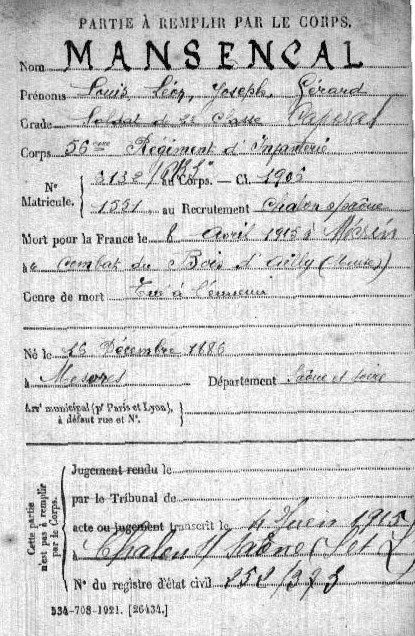 PARTIE À REMPLIR PAR LE CORPS.
Nom MANSENCAL
Prénoms Louis, Léon, Joseph, Gérard
Grade Soldat de 2e Classe Caporal
Corps 56eme Régiment d'Infanterie
N° Matricule. { au Corps. — Cl. 1906
1551 au Recrutement Chalon s/Saône
Mort pour la France le 8 Avril 1915 à
combat du Bois d'Ailly (Meuse)
Genre de mort Tué à l'ennemi
Né le Décembre 1886
à Département Saône et Loire
Arrt municipal (pr Paris et Lyon), à défaut rue et N°. }
Cette partie n'est pas à remplir par le Corps.
Jugement rendu le
par le Tribunal de
acte ou jugement transcrit le 4 Juin 1915
à Chalon s/ Saône (S et L)
N° du registre d'état civil 252/373
534-708-1921. [26434.]